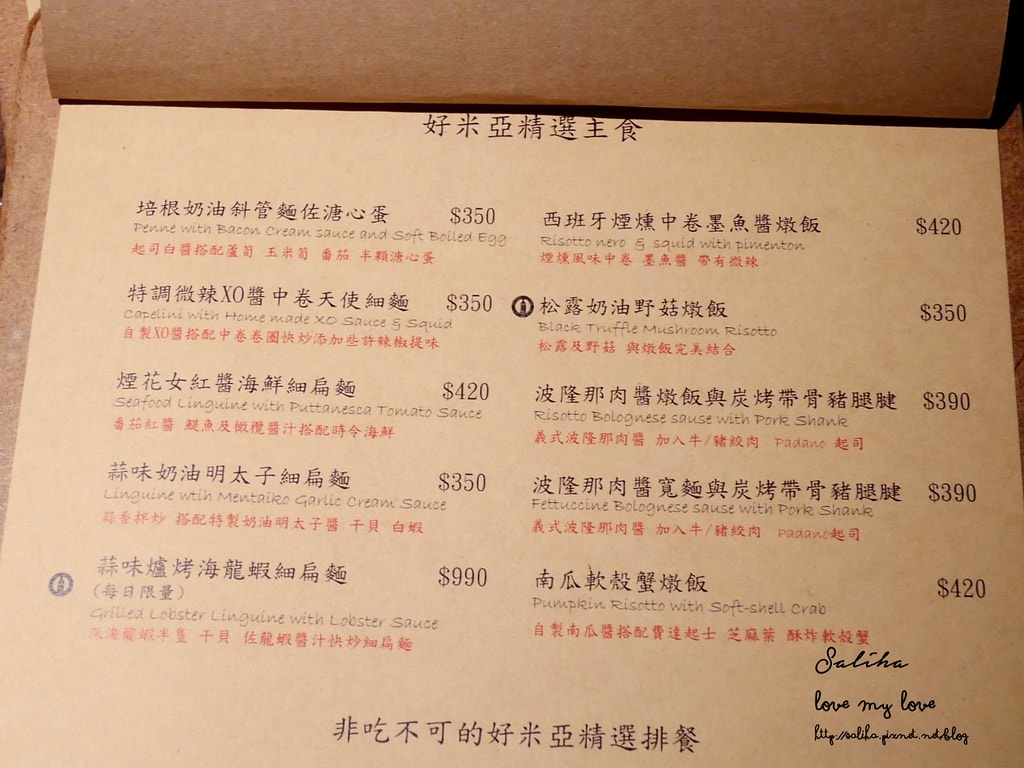 好米亞精選主食
培根奶油斜管麵佐溏心蛋 $350
Penne with Bacon Cream sauce and Soft Boiled Egg
起司白醬搭配蘆筍 玉米筍 番茄 半顆溏心蛋
特調微辣XO醬中卷天使細麵 $350
Capelini with Home made XO Sauce & Squid
自製XO醬搭配中卷卷圈快炒添加些許辣椒提味
煙花女紅醬海鮮細扁麵 $420
Seafood Linguine with Puttanesca Tomato Sauce
番茄紅醬 鯷魚及橄欖醬汁搭配時令海鮮
蒜味奶油明太子細扁麵 $350
Linguine wtih Mentaiko Garlic Cream Sauce
蒜香拌炒 搭配特製奶油明太子醬 干貝 白蝦
蒜味爐烤海龍蝦細扁麵 $990
(每日限量)
Grilled Lobster Linguine with Lobster Sauce
海龍蝦半隻 干貝 佐龍蝦醬汁快炒細扁麵
西班牙煙燻中卷墨魚醬燉飯 $420
Risotto nero & squid with pimenton
煙燻風味中卷 墨魚醬 帶有微辣
松露奶油野菇燉飯 $350
Black Truffle Mushroom Risotto
松露及野菇 與燉飯完美結合
波隆那肉醬燉飯與炭烤帶骨豬腿腱 $390
Risotto Bolognese sause with Pork Shank
義式波隆那肉醬 加入牛/豬絞肉 Padano 起司
波隆那肉醬寬麵與炭烤帶骨豬腿腱 $390
Fettuccine Bolognese sause with Pork Shank
義式波隆那肉醬 加入牛/豬絞肉 Padano起司
南瓜軟殼蟹燉飯 $420
Pumpkin Risotto with Soft-shell Crab
自製南瓜醬搭配費達起士 芝麻葉 酥炸軟殼蟹
非吃不可的好米亞精選排餐
Saliha
love my love
http://saliha.pixnet.net/blog